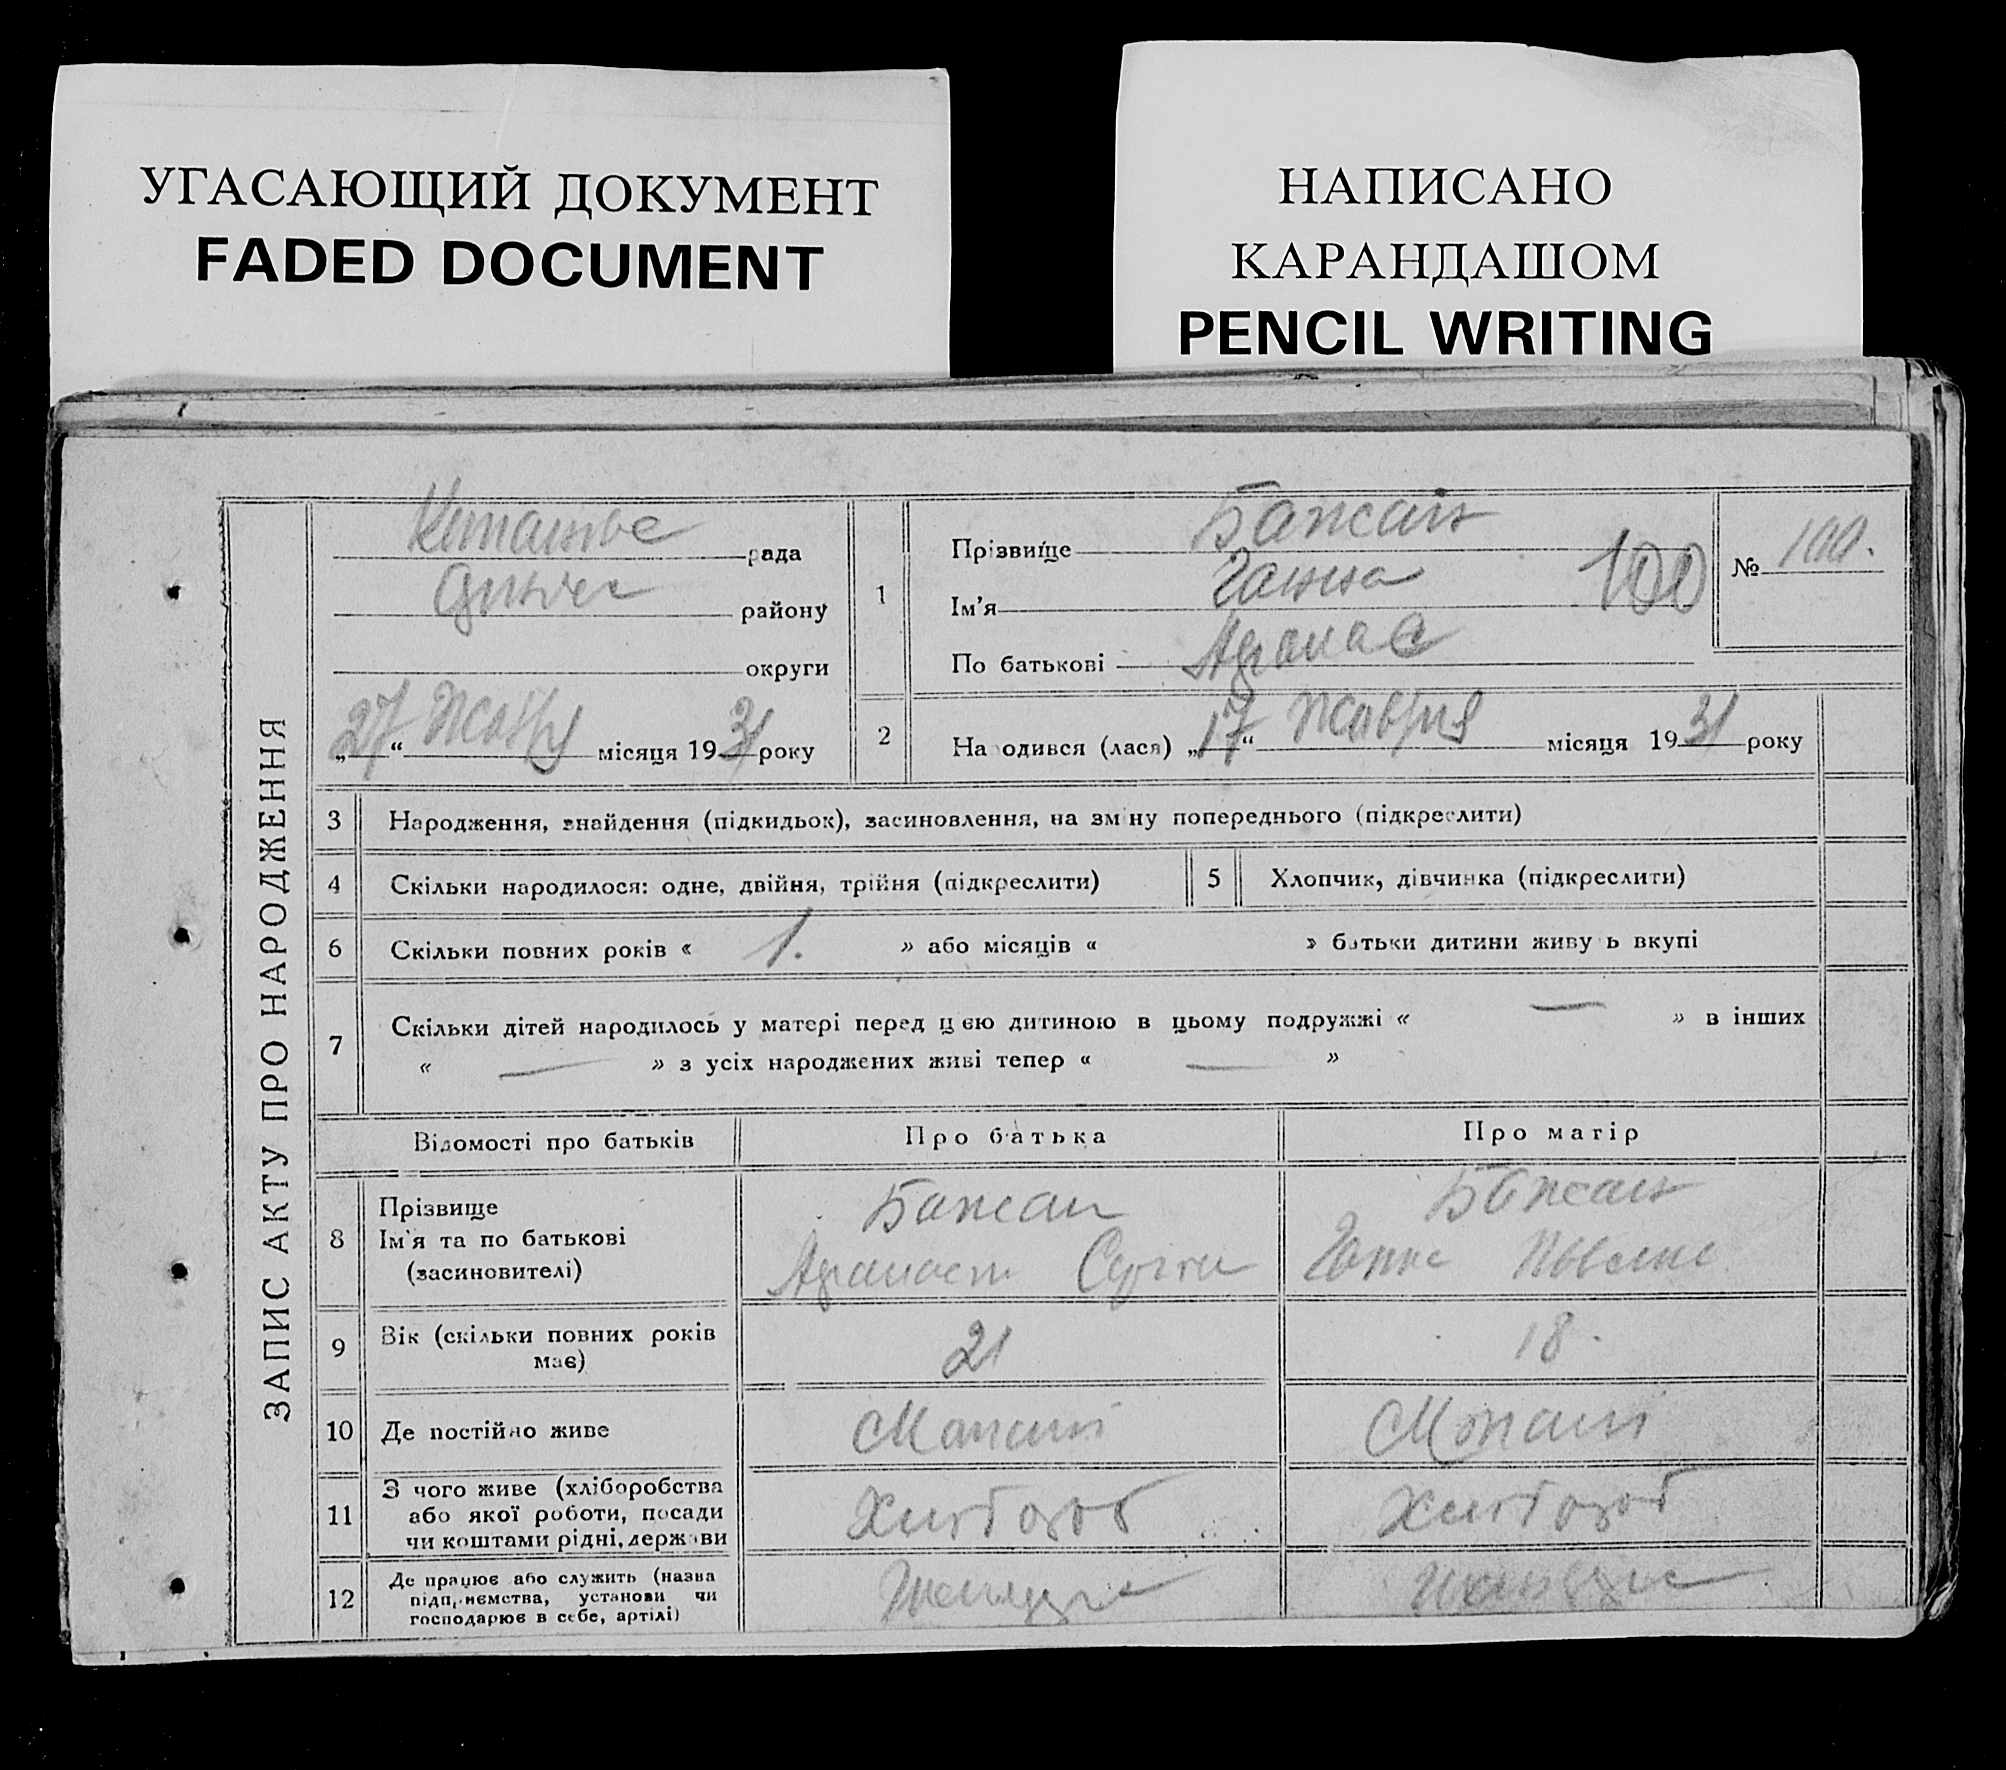 УГАСАЮЩИЙ ДОКУМЕНТ
FADED DOCUMENT
НАПИСАНО
КАРАНДАШОМ
PENCIL WRITING
ЗАПИС АКТУ ПРО НАРОДЖЕННЯ
рада
району
округи
„27“ Жовтр місяця 1931 року
1
Прізвище Бажан
Ім'я Ганна 100
По батькові Афанас
№ 100.
2 На одився (лася) „17“ Жовтня місяця 1931 року
3 Народження, знайдення (підкидьок), засиновлення, на зміну попереднього (підкреслити)
4 Скільки народилося: одне, двійня, трійня (підкреслити)
5 Хлопчик, дівчинка (підкреслити)
6 Скільки повних років « 1. » або місяців « » батьки дитини живу ь вкупі
7 Скільки дітей народилось у матері перед цією дитиною в цьому подружжі « — » в інших
« — » з усіх народжених живі тепер « — »
Відомості про батьків Про батька Про матір
8 Прізвище
Ім'я та по батькові
(засиновителі)
Бажан
Афанасій Сергій
Бажан
Ганна
9 Вік (скільки повних років
має)
21
18.
10 Де постійно живе
11 З чого живе (хліборобства
або якої роботи, посади
чи коштами рідні, держави
Хлібороб
Хлібороб
12 Де працює або служить (назва
підприємства, установи чи
господарює в себе, артілі)